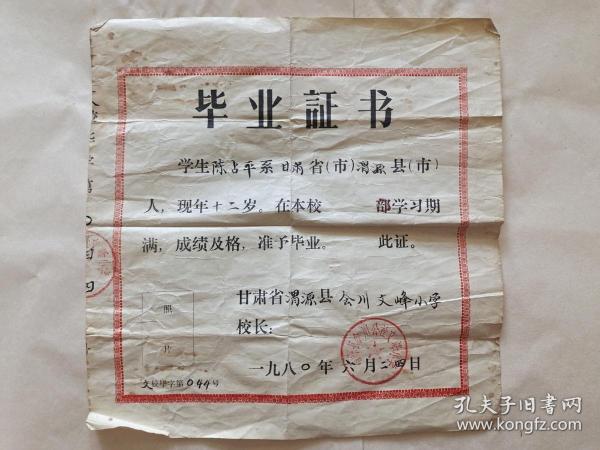 毕业証书
学生陈占平系甘肃省(市)渭源县(市)
人,现年十二岁。在本校 部学习期
满,成绩及格,准予毕业。 此证。
甘肃省渭源县会川文峰小学
校长:
一九八〇年六月二四日
照
片
文校毕字第044号
孔夫子旧书网
www.kongfz.com